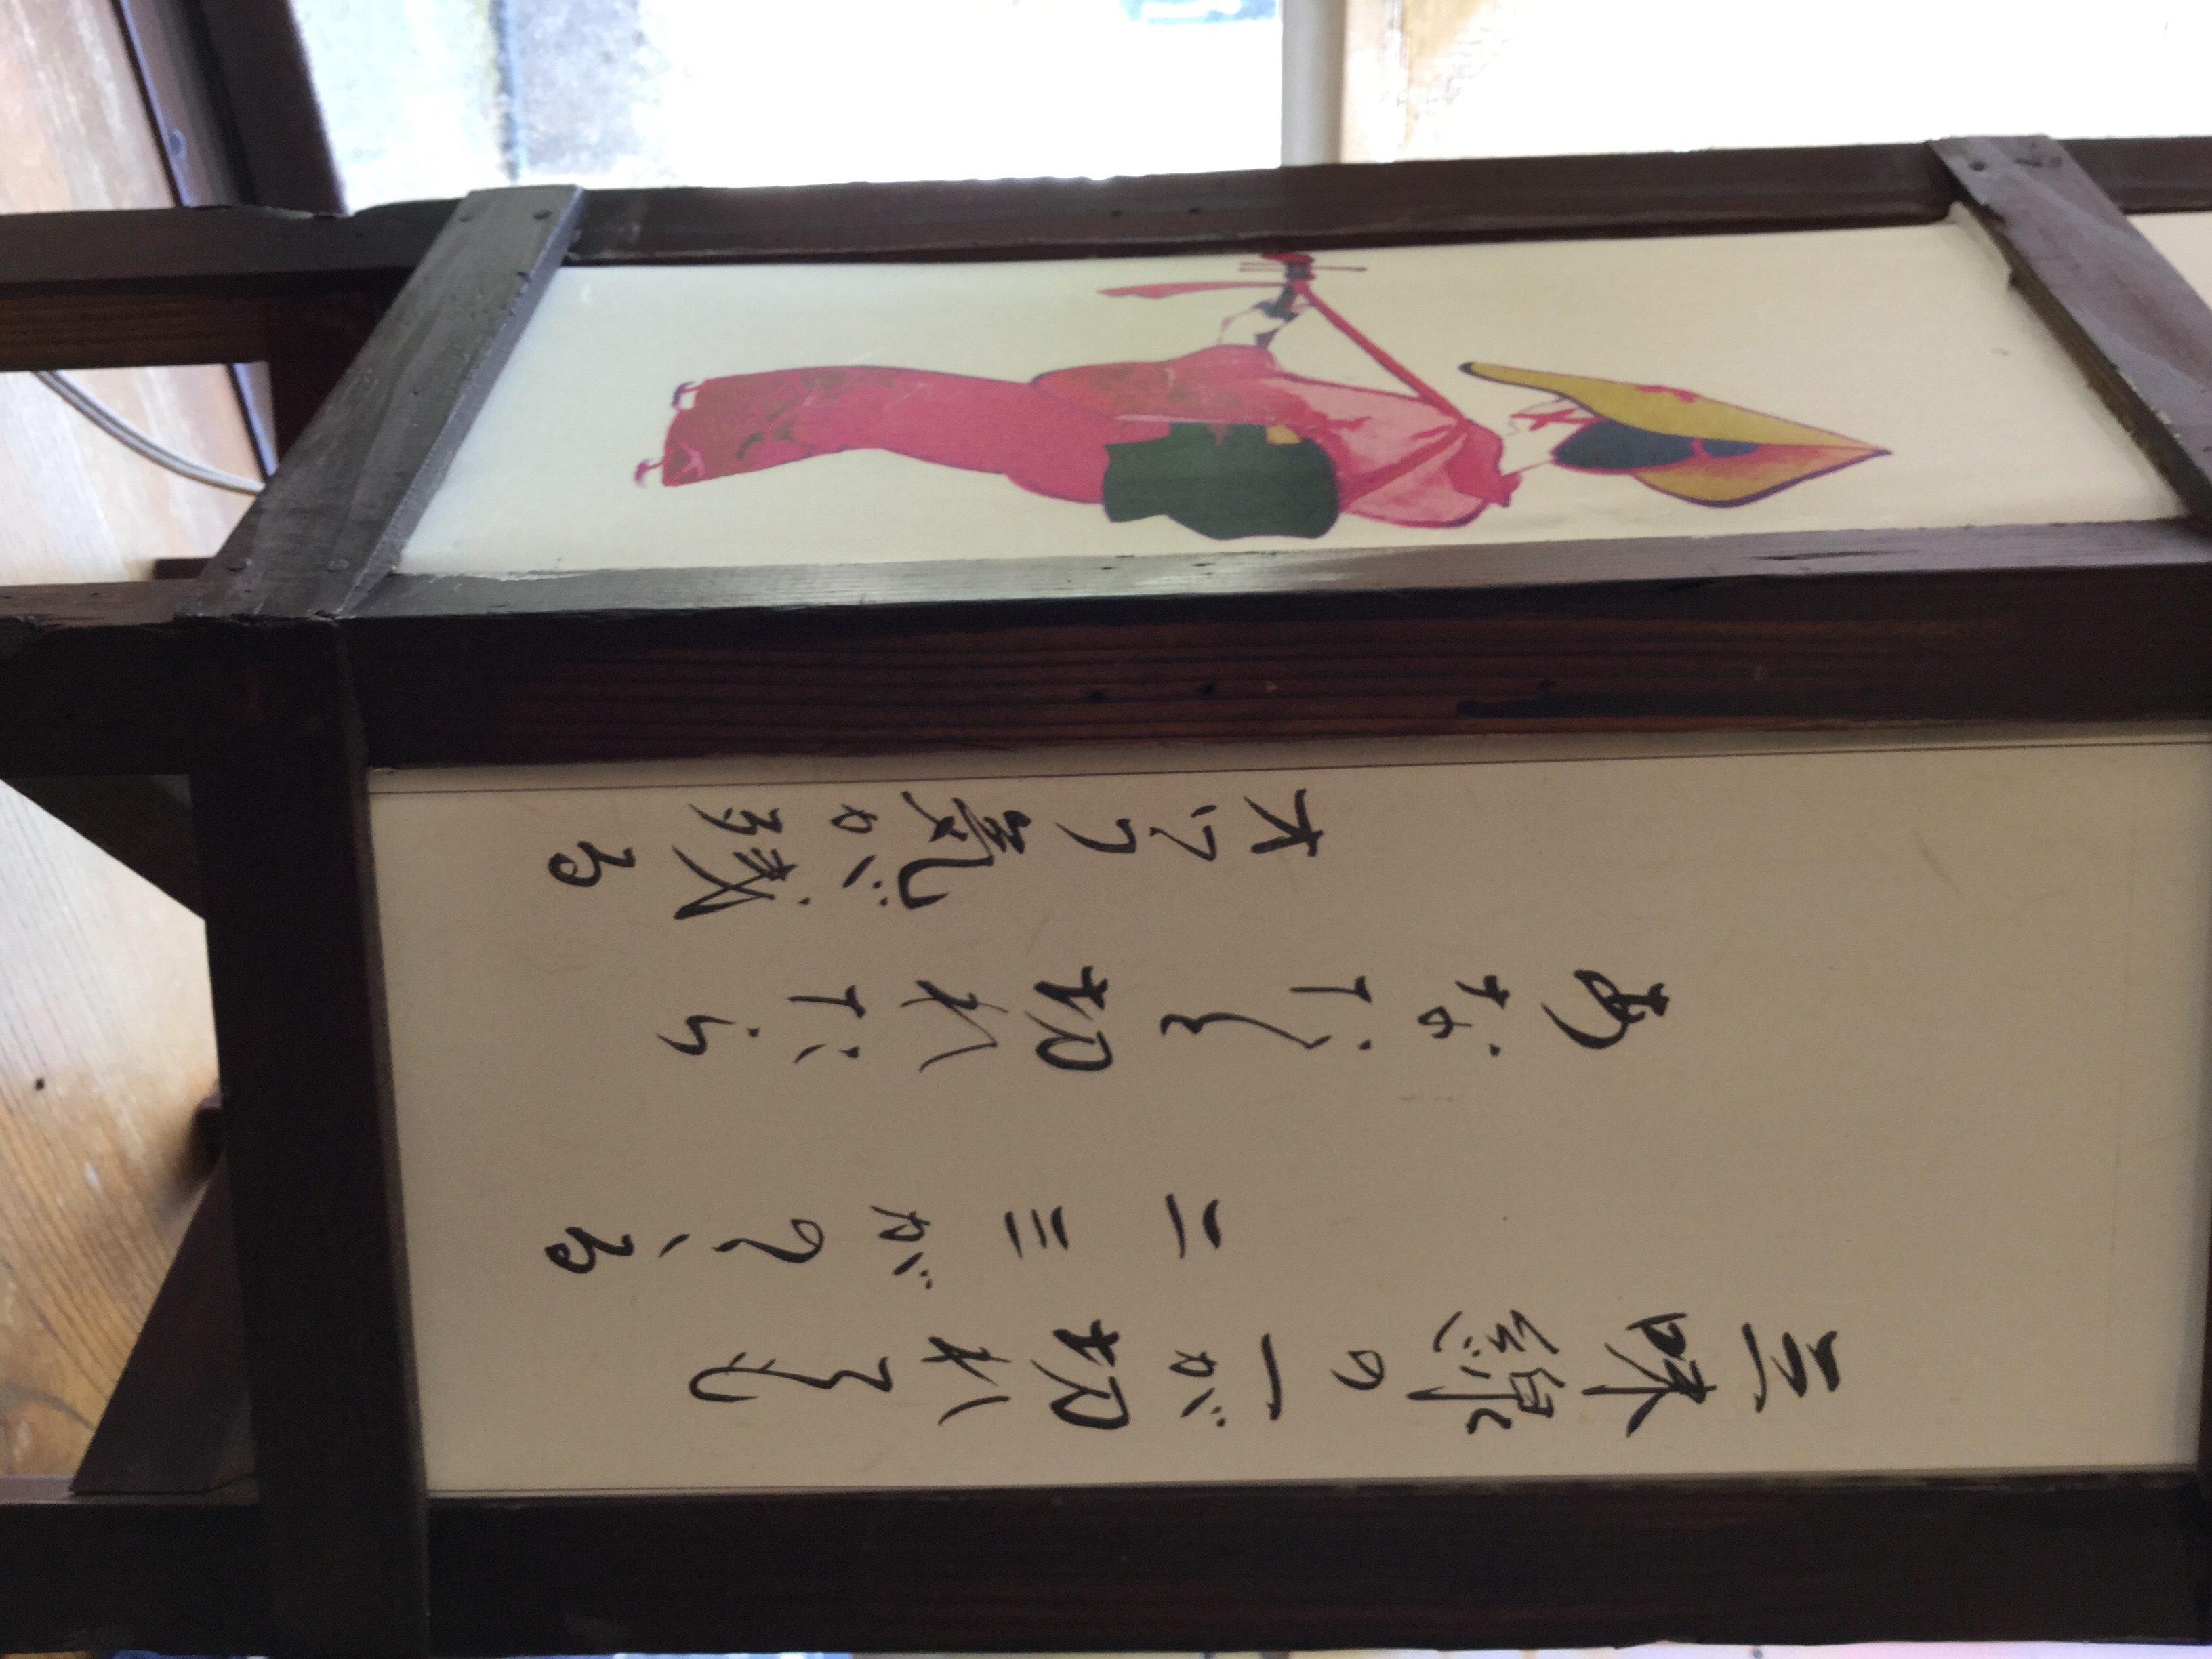 三味線の一が切れても
二三がのこる
あなたと切れたら
オワラ気が残る